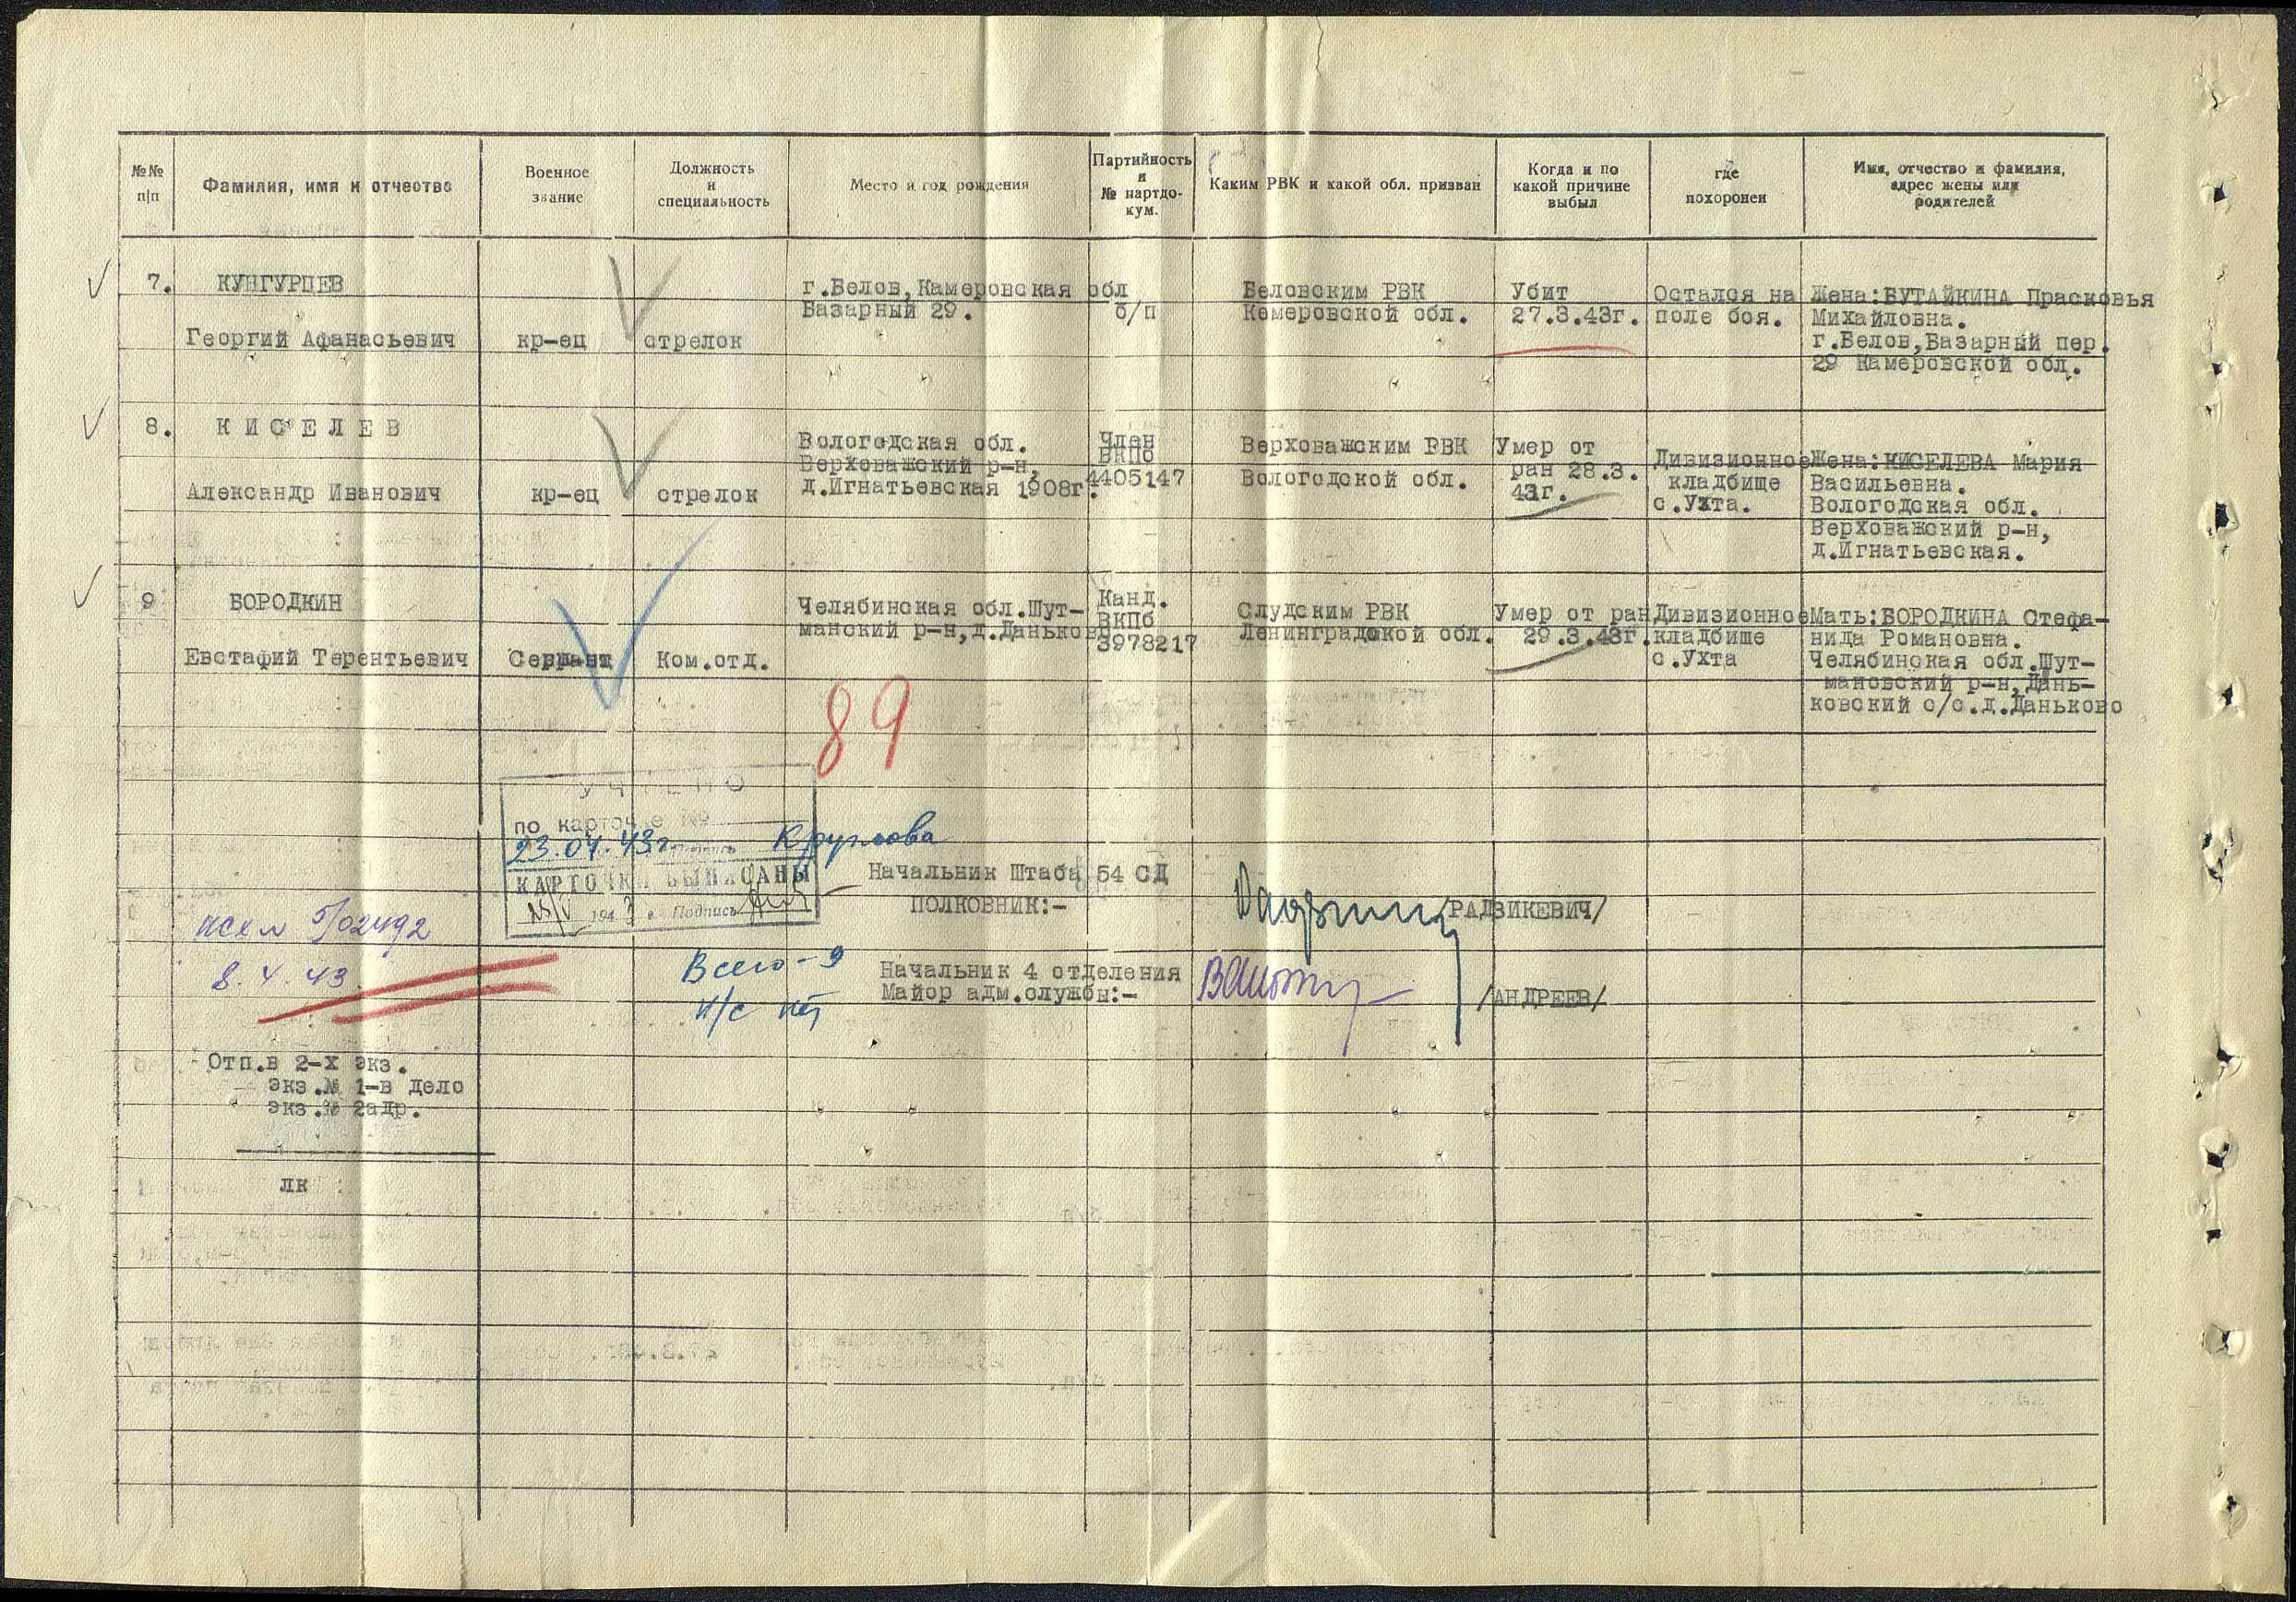 №№ п/п
Фамилия, имя и отчество
Военное звание
Должность и специальность
Место и год рождения
Партийность и № партдокум.
Каким РВК и какой обл. призван
Когда и по какой причине выбыл
где похоронен
Имя, отчество и фамилия, адрес жены или родителей
7.
КУНГУРЦЕВ
Георгий Афанасьевич
кр-ец
стрелок
г.Белов,Камеровская обл
Базарный 29.
б/п
Беловским РВК
Кемеровской обл.
Убит
27.3.43г.
Остался на
поле боя.
Жена:БУТАЙКИНА Прасковья
Михайловна.
г.Белов,Базарный пер.
29 Камеровской обл.
8.
КИСЕЛЕВ
Александр Иванович
кр-ец
стрелок
Вологодская обл.
Верховажский р-н,
д.Игнатьевская 1908г.
Член
ВКПб
4405147
Верховажским РВК
Вологодской обл.
Умер от
ран 28.3.
43г.
Дивизионное
кладбище
с.Ухта.
Жена:КИСЕЛЕВА Мария
Васильевна.
Вологодская обл.
Верховажский р-н,
д.Игнатьевская.
9
БОРОДКИН
Евстафий Терентьевич
Сержант
Ком.отд.
Челябинская обл.Шут-
манский р-н,д.Даньково
Канд.
ВКПб
3978217
Слудским РВК
Ленинградской обл.
Умер от ран
29.3.43г.
Дивизионное
кладбище
с.Ухта
Мать:БОРОДКИНА Стефа-
нида Романовна.
Челябинская обл.Шут-
мановский р-н,Дань-
ковский с/с.д.Даньково
89
УЧТЕНО
по карточке №
23.04.43г Круглова
КАРТОЧКИ ВЫПИСАНЫ
194 3 г. Подпись
Начальник Штаба 54 СД
ПОЛКОВНИК:-
/РАДЗИКЕВИЧ/
02492
8.4.43.
Всего-9
н/с нет
Начальник 4 отделения
Майор адм.службы:-
/АНДРЕЕВ/
Отп.в 2-х экз.
экз.№ 1-в дело
экз.№ 2адр.
лк